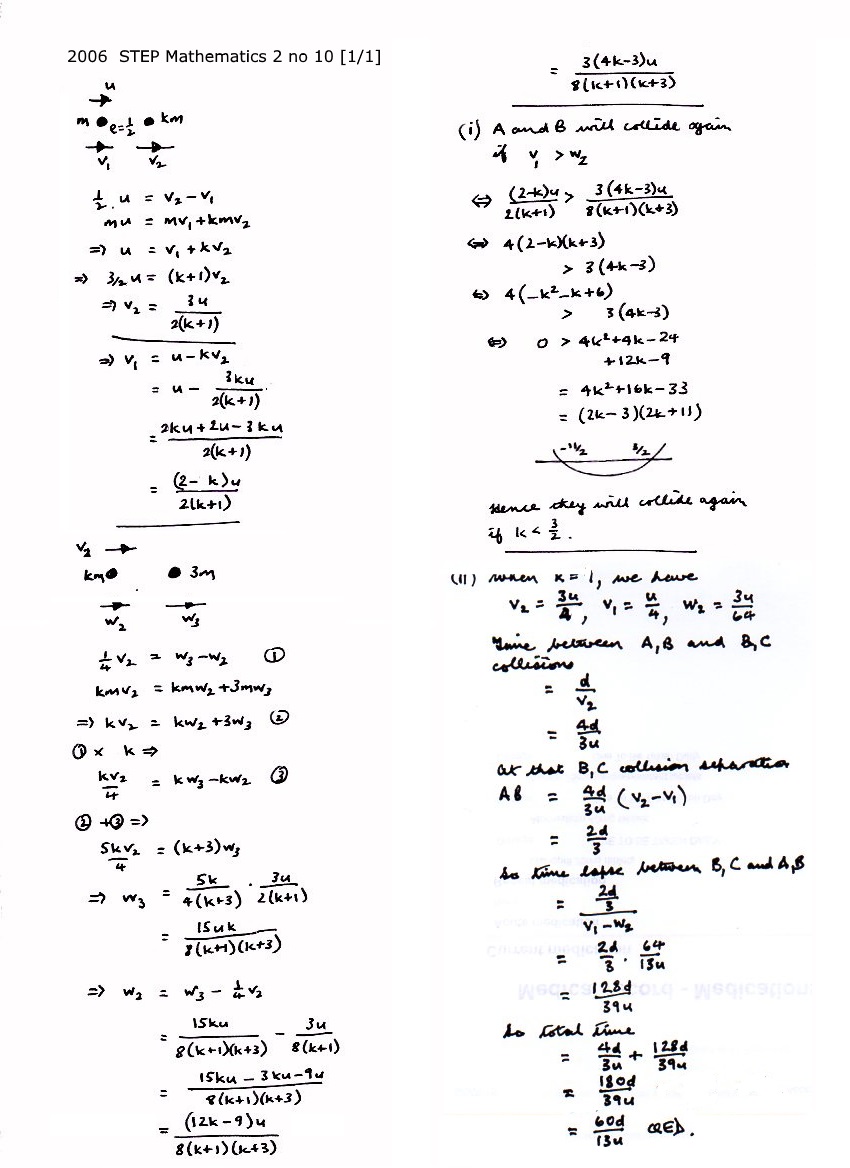 2006 STEP Mathematics 2 no 10 [1/1]
u
m e=½ km
V₁ V₂
½.u = V₂-V₁
mu = mV₁+kmV₂
=> u = V₁+kV₂
=> 3/2 u = (k+1)V₂
=> V₂ = 3u / 2(k+1)
=> V₁ = u-kV₂
= u - 3ku / 2(k+1)
= 2ku+2u-3ku / 2(k+1)
= (2-k)u / 2(k+1)
V₂
km 3m
W₂ W₃
¼V₂ = W₃-W₂ ①
kmV₂ = kmW₂+3mW₃
=> kV₂ = kW₂+3W₃ ②
① x k =>
kV₂/4 = kW₃-kW₂ ③
②+③ =>
5kV₂/4 = (k+3)W₃
=> W₃ = 5k / 4(k+3) . 3u / 2(k+1)
= 15uk / 8(k+1)(k+3)
=> W₂ = W₃ - ¼V₂
= 15ku / 8(k+1)(k+3) - 3u / 8(k+1)
= 15ku-3ku-9u / 8(k+1)(k+3)
= (12k-9)u / 8(k+1)(k+3)
= 3(4k-3)u / 8(k+1)(k+3)
(i) A and B will collide again
if V₁ > W₂
⇔ (2-k)u / 2(k+1) > 3(4k-3)u / 8(k+1)(k+3)
⇔ 4(2-k)(k+3)
> 3(4k-3)
⇔ 4(-k²-k+6)
> 3(4k-3)
⇔ 0 > 4k²+4k-24
+12k-9
= 4k²+16k-33
= (2k-3)(2k+11)
-11/2 3/2
Hence they will collide again
if k < 3/2.
(ii) When k=1, we have
V₂ = 3u/4, V₁ = u/4, W₂ = 3u/64
Time between A,B and B,C
collisions
= d/V₂
= 4d/3u
At that B,C collision separation
AB = 4d/3u (V₂-V₁)
= 2d/3
So time lapse between B,C and A,B
= 2d/3 / V₁-W₂
= 2d/3 . 64/13u
= 128d/39u
So total time
= 4d/3u + 128d/39u
= 180d/39u
= 60d/13u QED.